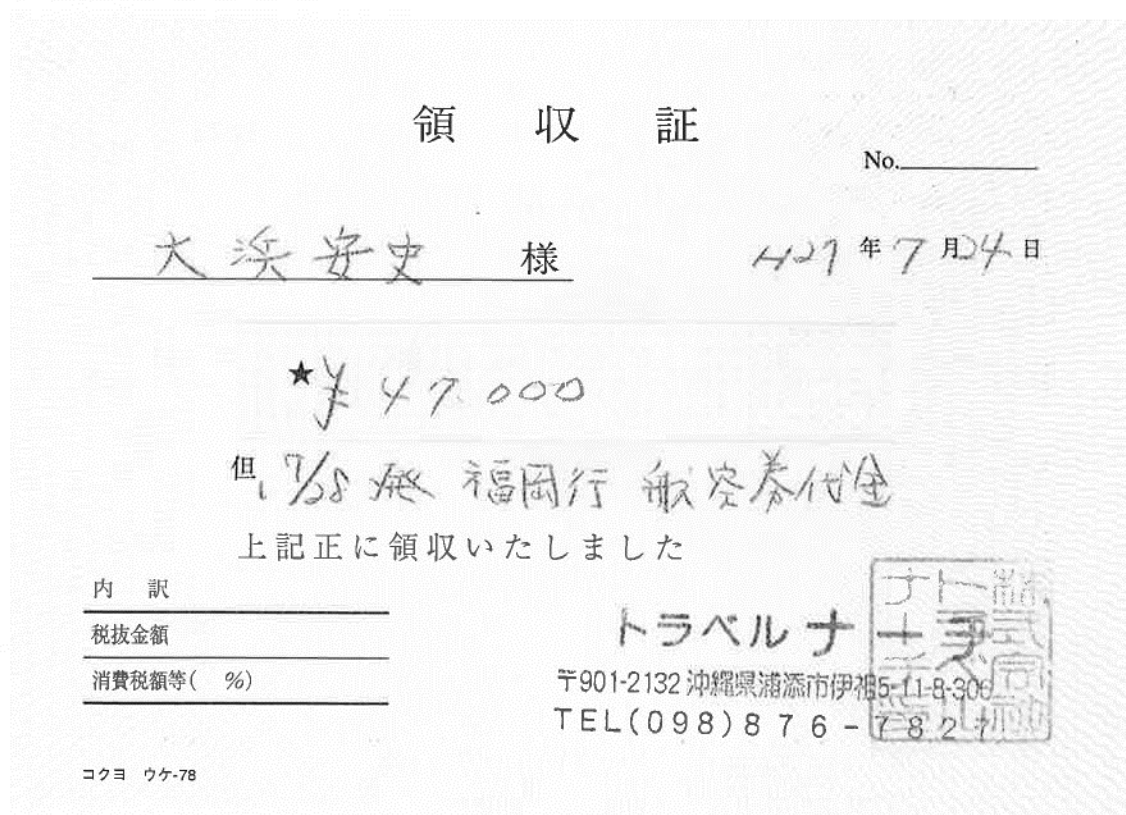 領収証
No.
大浜安史 様
H27年7月24日
★¥47,000
但 7/28発 福岡行 航空券代金
上記正に領収いたしました
内訳
税抜金額
消費税額等( %)
トラベルナ
〒901-2132 沖縄県浦添市伊祖5-11-8-306
TEL(098)876-782
株式会社
トラベル
コクヨ ウケ-78